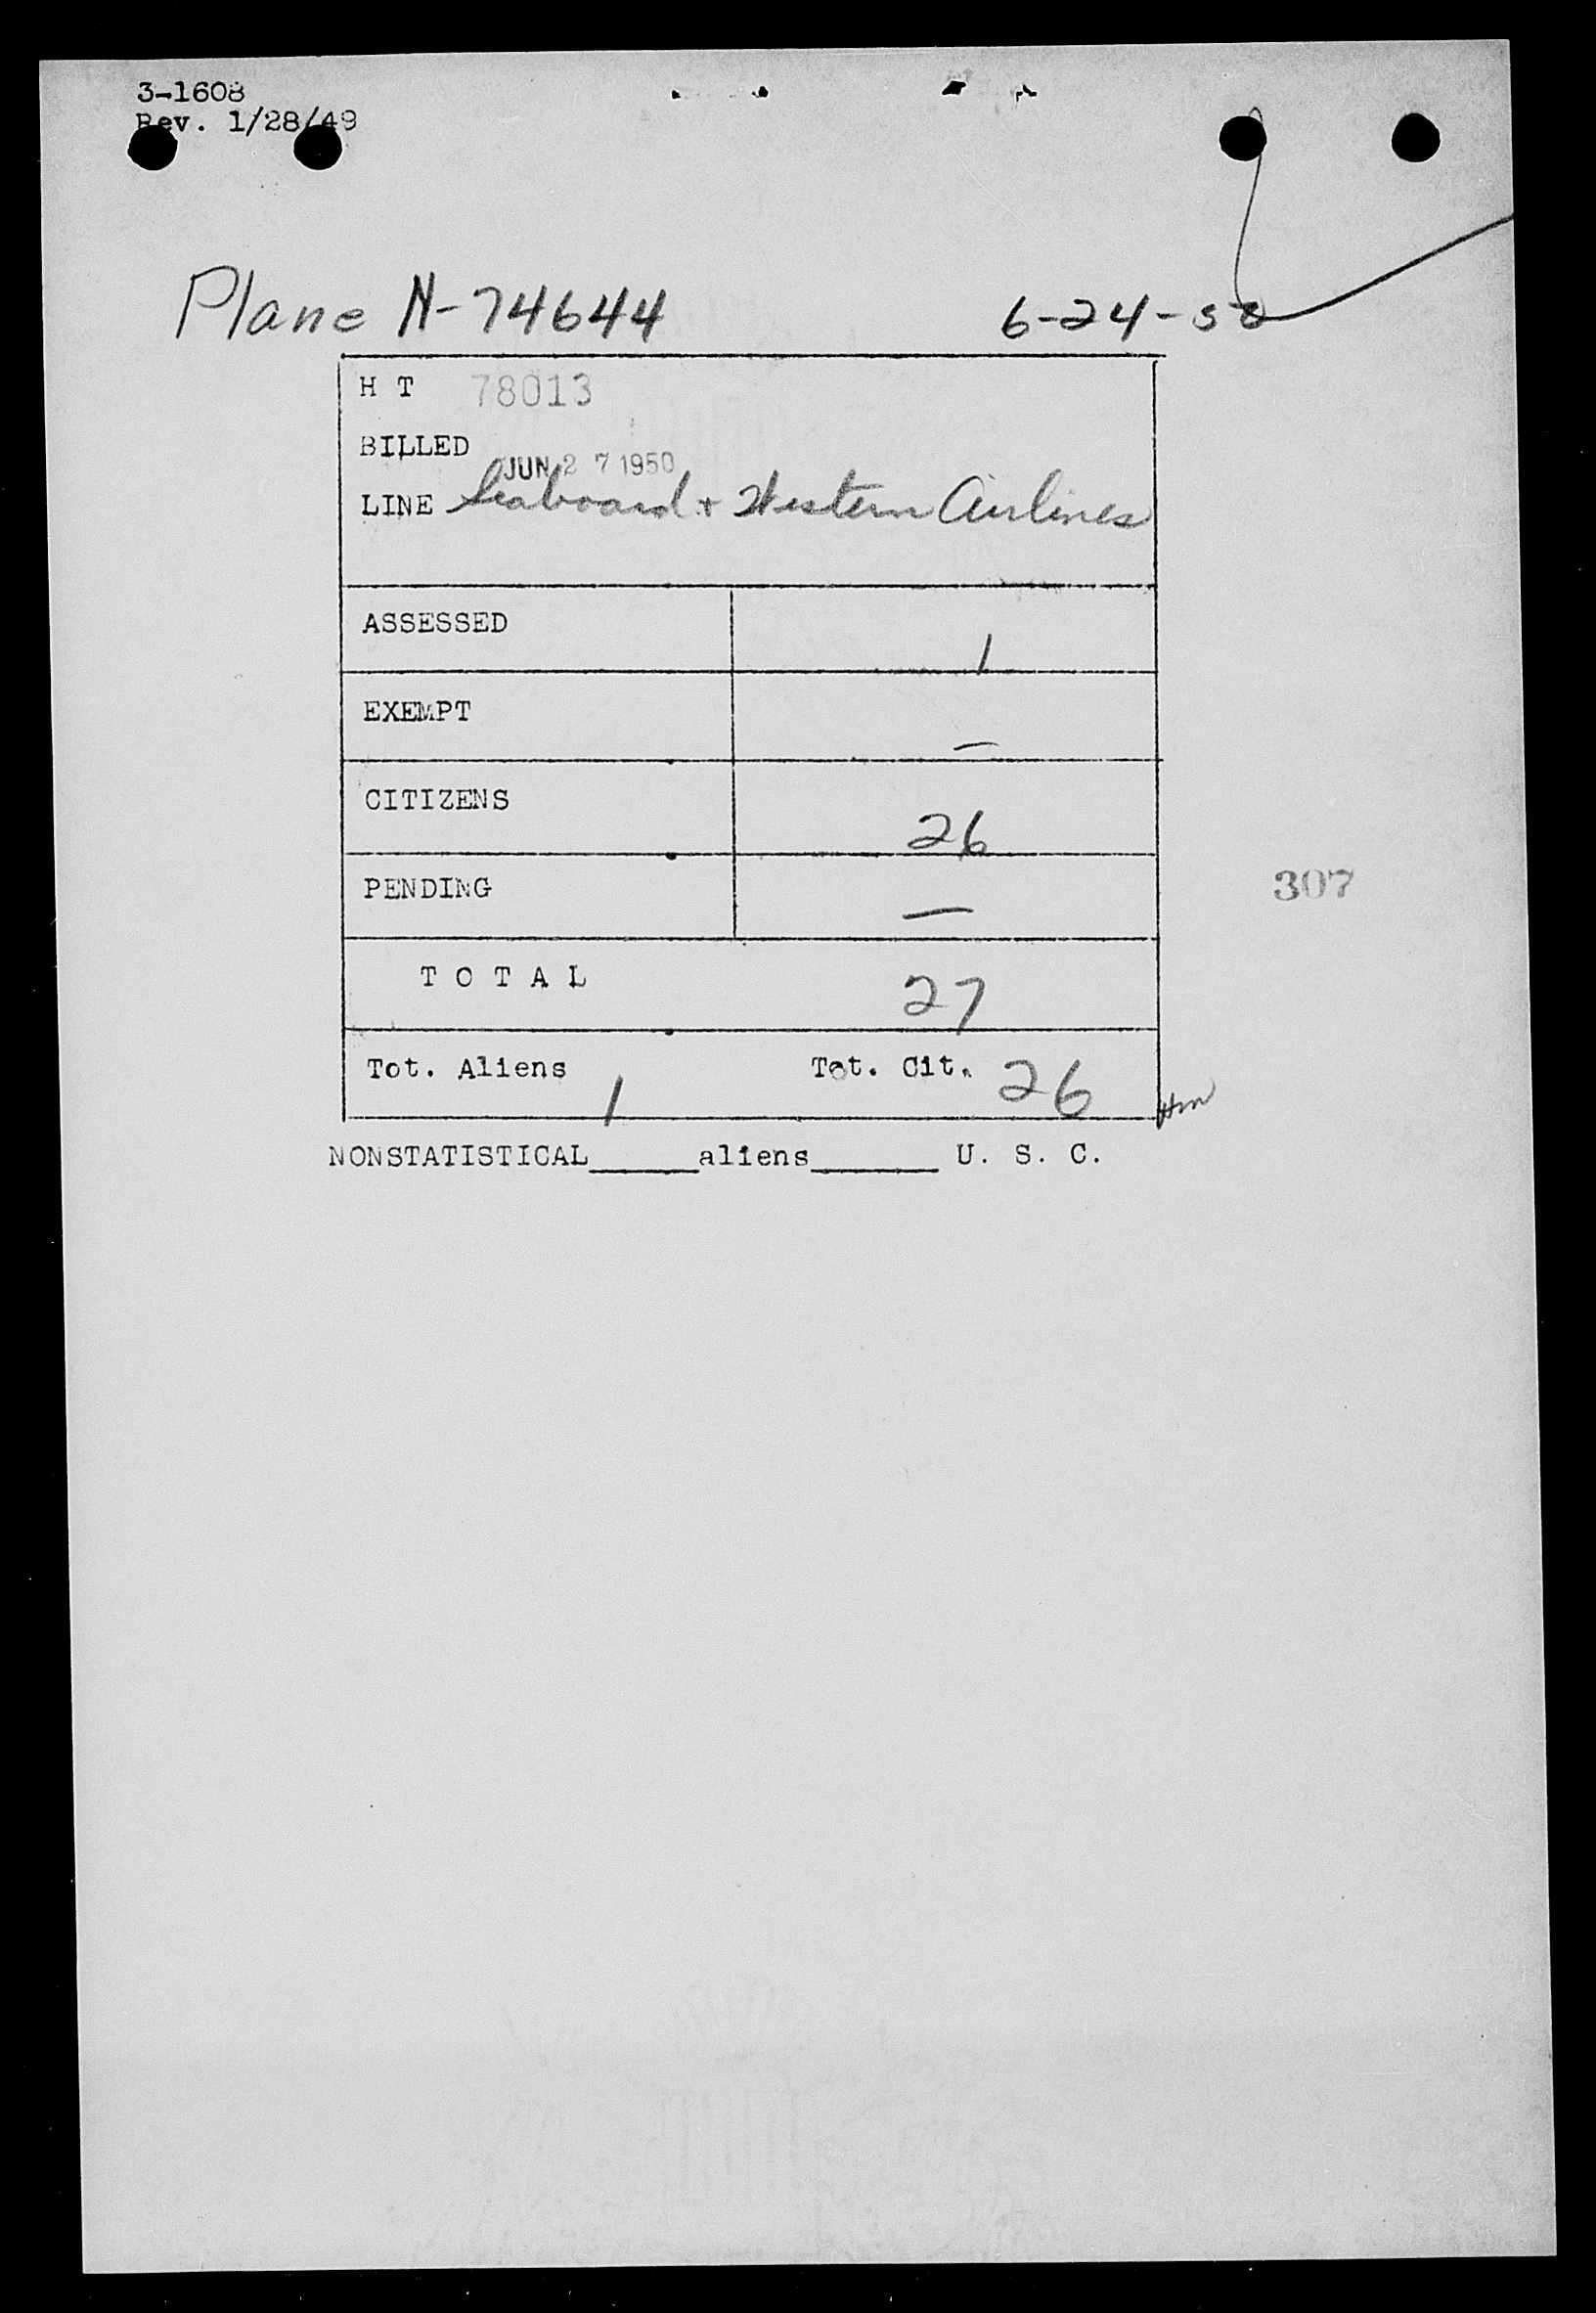 3-1608
Rev. 1/28/49
Plane N-74644 6-24-50
H T 78013
BILLED JUN 27 1950
LINE Seaboard & Western Airlines
ASSESSED 1
EXEMPT —
CITIZENS 26
307
PENDING —
T O T A L 27
Tot. Aliens 1 Tot. Cit. 26
NONSTATISTICAL______aliens_______ U. S. C.